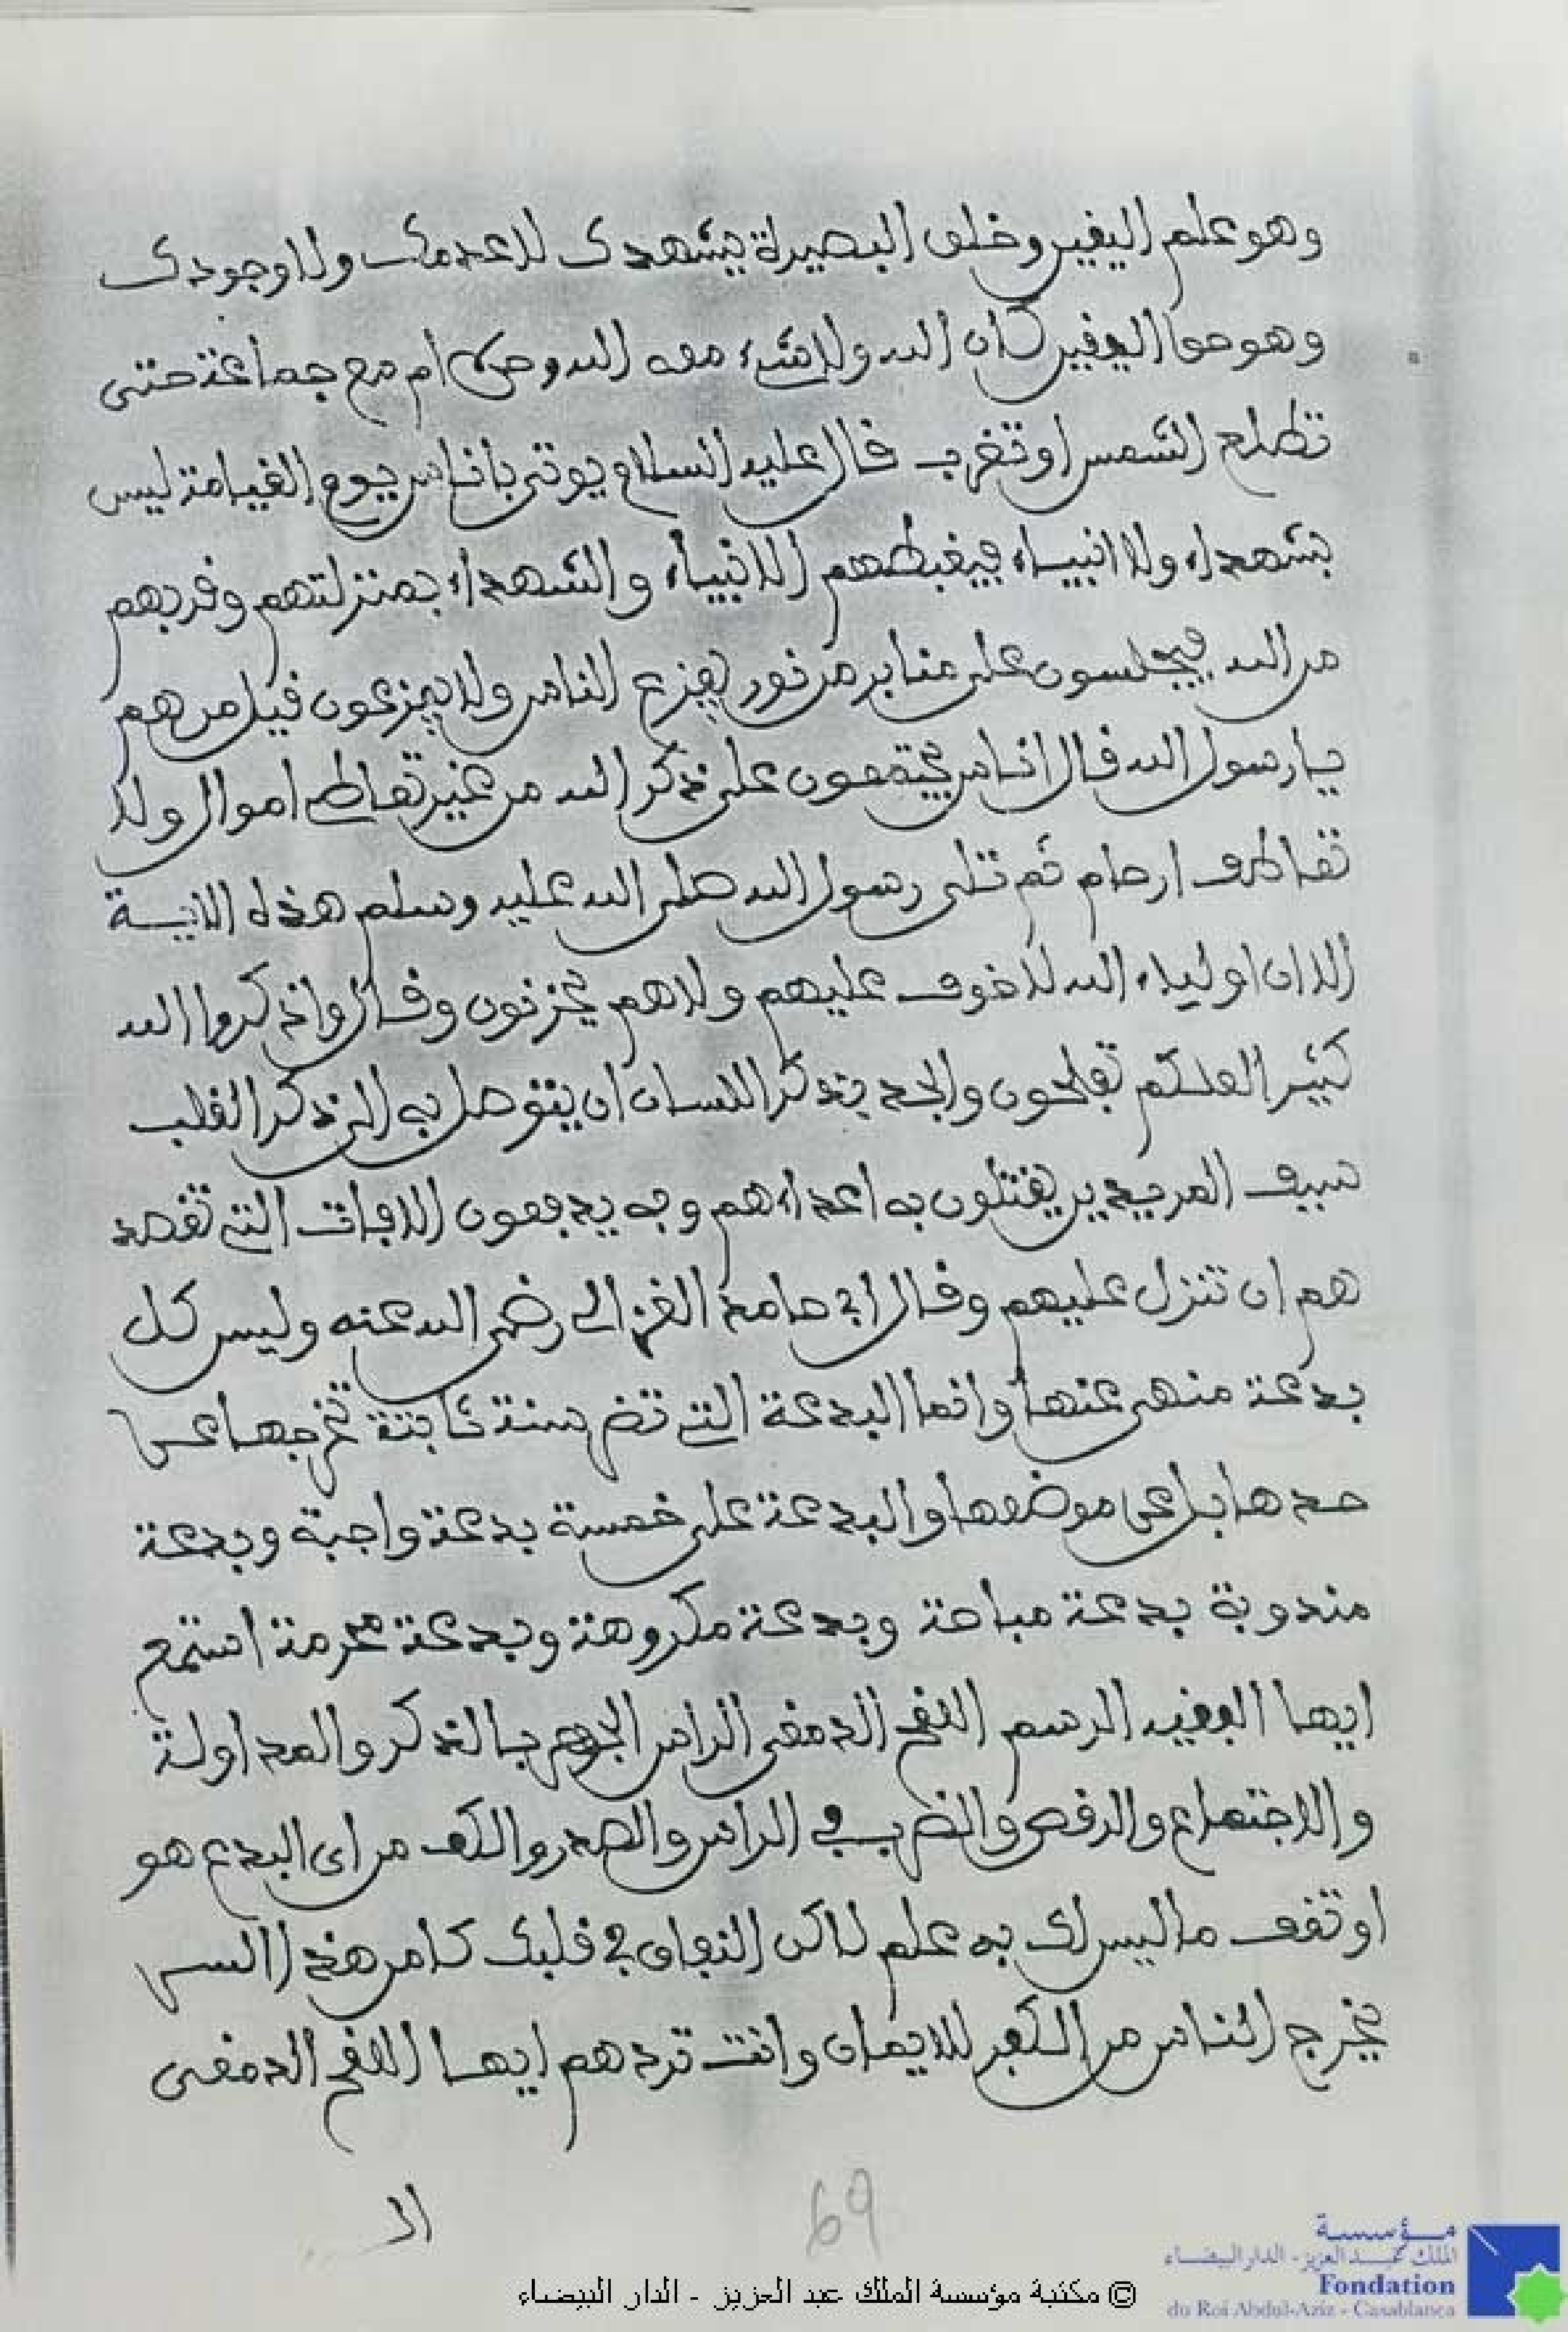 وهو علم اليقين وخلق البصيرة يشهدك لا عدمك ولا وجودك
وهو حق اليقين كان الله ولا شيء معه الله وحده ام مع جماعة حتى
تطلع الشمس او تغرب قال عليه السلام يوتى باناس يوم القيامة ليس
بشهداء ولا انبياء فيغبطهم الانبياء والشهداء بمنزلتهم وقربهم
من الله فيجلسون على منابر من نور يفزع الناس ولا يفزعون قيل من هم
يا رسول الله قال اناس يجتمعون على ذكر الله من غير تعاطي اموال ولا
تعاطف ارحام ثم تلى رسول الله صلى الله عليه وسلم هذه الاية
الا ان اولياء الله لا خوف عليهم ولا هم يحزنون وقال واذكروا الله
كثير العلكم تفلحون والجد بذكر اللسان ان يتوصل به الى ذكر القلب
سيف المريدين يقتلون به اعداءهم وبه يدفعون الافات التي تقصد
هم ان تنزل عليهم وقال ابي حامد الغزالي رضي الله عنه وليس كل
بدعة منهى عنها وانما البدعة التي تضر سنة ثابتة تخرجها عن
حدها بل عن موضعها والبدعة على خمسة بدعة واجبة وبدعة
مندوبة بدعة مباحة وبدعة مكروهة وبدعة محرمة استمع
ايها الفقيه الرسم القح الدمغى الراس الجهر بالذكر والمداولة
والاجتماع والرقص والضرب في الراس والصدر والكف من اى البدع هو
او تقف ما ليس لك به علم لاكن النفاق في قلبك كامن هذا السر
يخرج الناس من الكفر للايمان وانت تردهم ايها القح الدمغى
الا
69
© مكتبة مؤسسة الملك عبد العزيز - الدار البيضاء
مؤسسة
الملك عبد العزيز - الدار البيضاء
Fondation
du Roi Abdul-Aziz - Casablanca